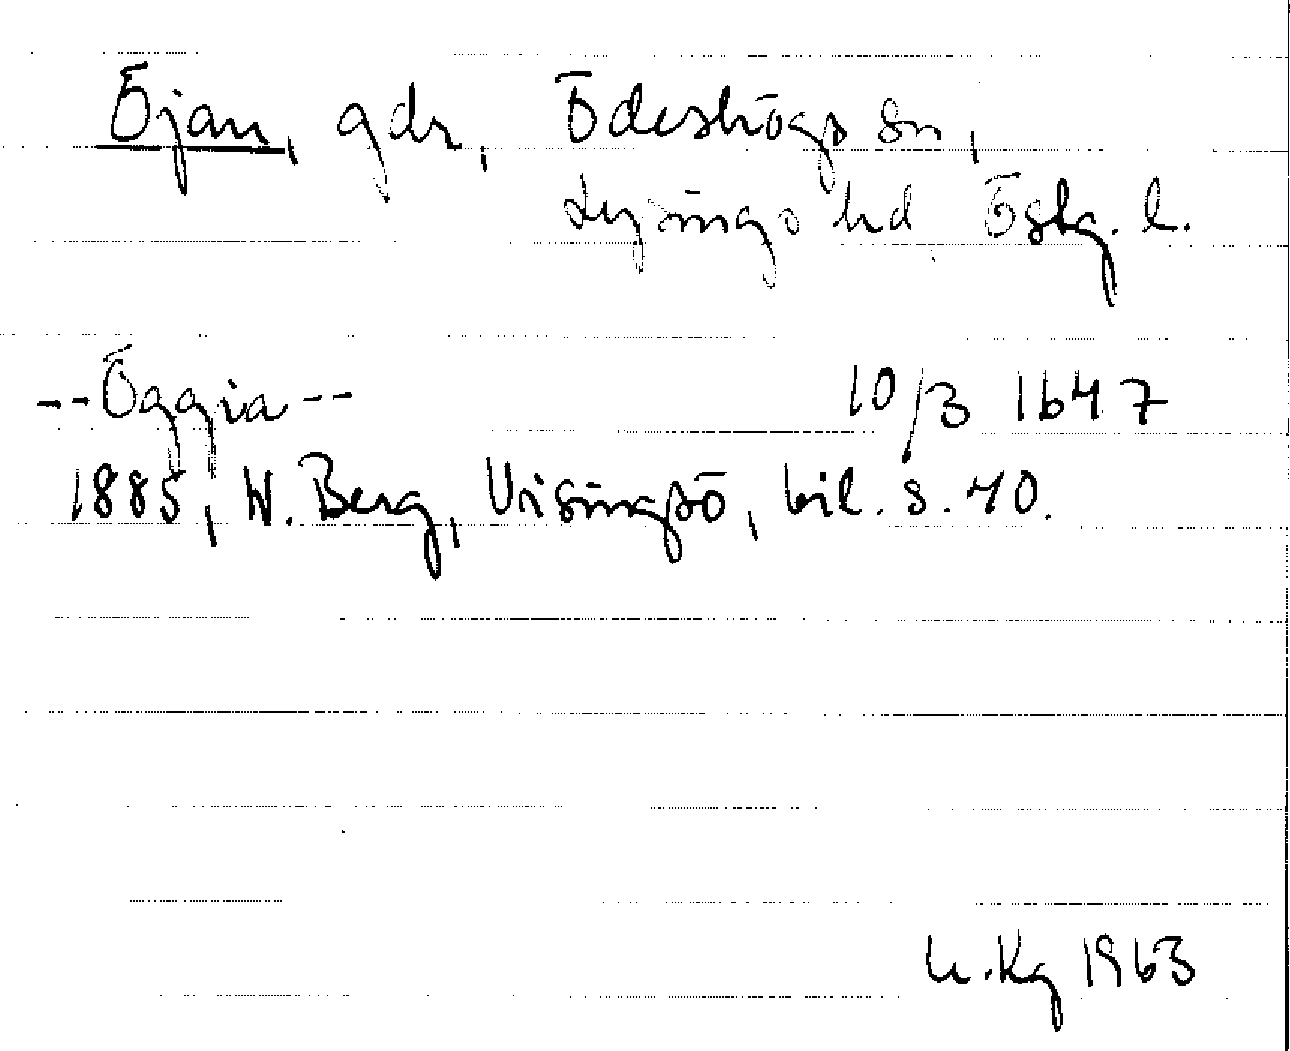 Öjan, gdr, Ödeshögs sn,
Lysings hd Östg. l.
--Öggia-- 10/3 1647
1885, W. Berg, Visingsö, bil. s. 40.
H. Kg 1963